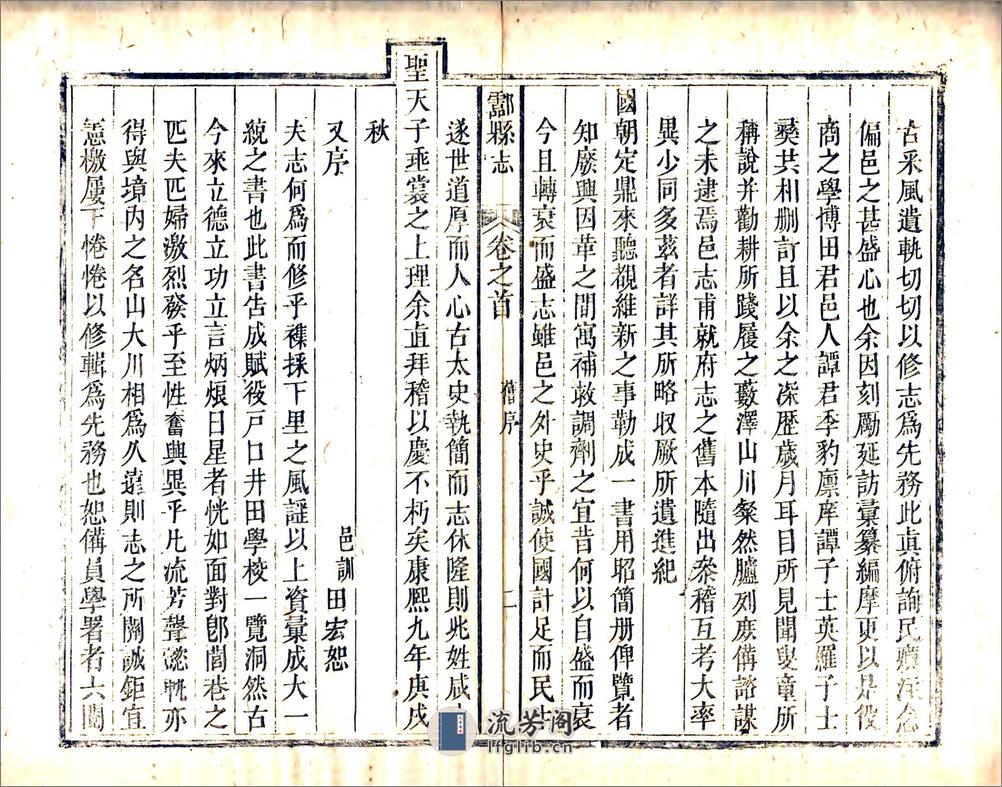 古采風遺軌切切以修志爲先務此真俯詢民瘼注念
偏邑之甚盛心也余因刻勵延訪彙纂編摩更以是役
商之學博田君邑人譚君季豹廪庠譚子士英羅子士
彛共相刪訂且以余之深歷歲月耳目所見聞叟童所
稱說并勸耕所踐履之藪澤山川粲然臚列庶備諮謀
之未逮焉邑志甫就府志之舊本隨出叅稽互考大率
異少同多茲者詳其所略收厥所遺進紀
國朝定鼎來聽覩維新之事勒成一書用昭簡册俾覽者
知厥興因革之間寓補敝調劑之宜昔何以自盛而衰
今且轉衰而盛志雖邑之外史乎誠使國計足而民
酃縣志
卷之首
舊序
二
遂世道厚而人心古太史執簡而志休隆則此姓咸
聖天子垂裳之上理余直拜稽以慶不朽矣康熙九年庚戌
秋
又序
邑訓 田宏恕
夫志何爲而修乎襍採下里之風謡以上資彙成大一
統之書也此書告成賦役戸口井田學校一覽洞然古
今來立德立功立言炳烺日星者恍如面對卽閭巷之
匹夫匹婦激烈發乎至性奮興異乎凡流芳聲懿軌亦
得與境内之名山大川相爲久遠則志之所關誠鉅宜
憲檄屢下惓惓以修輯爲先務也恕備員學署者六閱
流芳阁
lfglib.cn